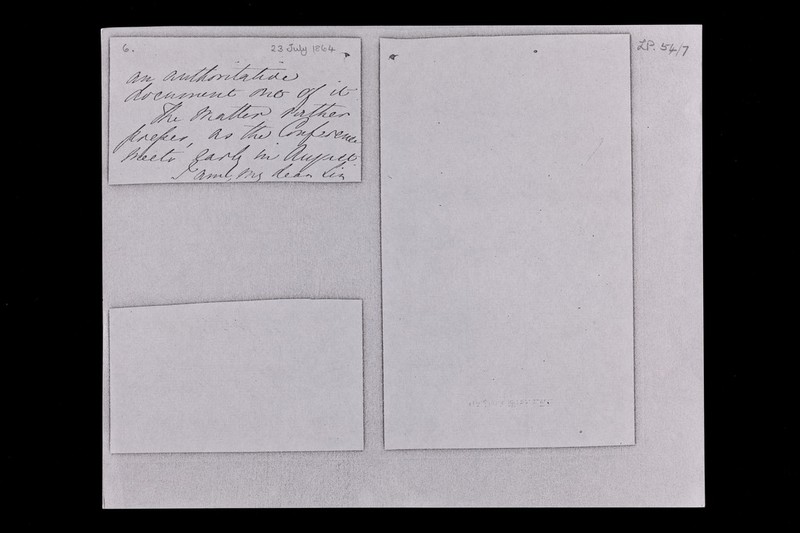 6.
23 July 1864
an authoritative
document out of it
The matter rather
presses, as the Conference
meets early in August
I am, My dear Sir
LP. 54/7